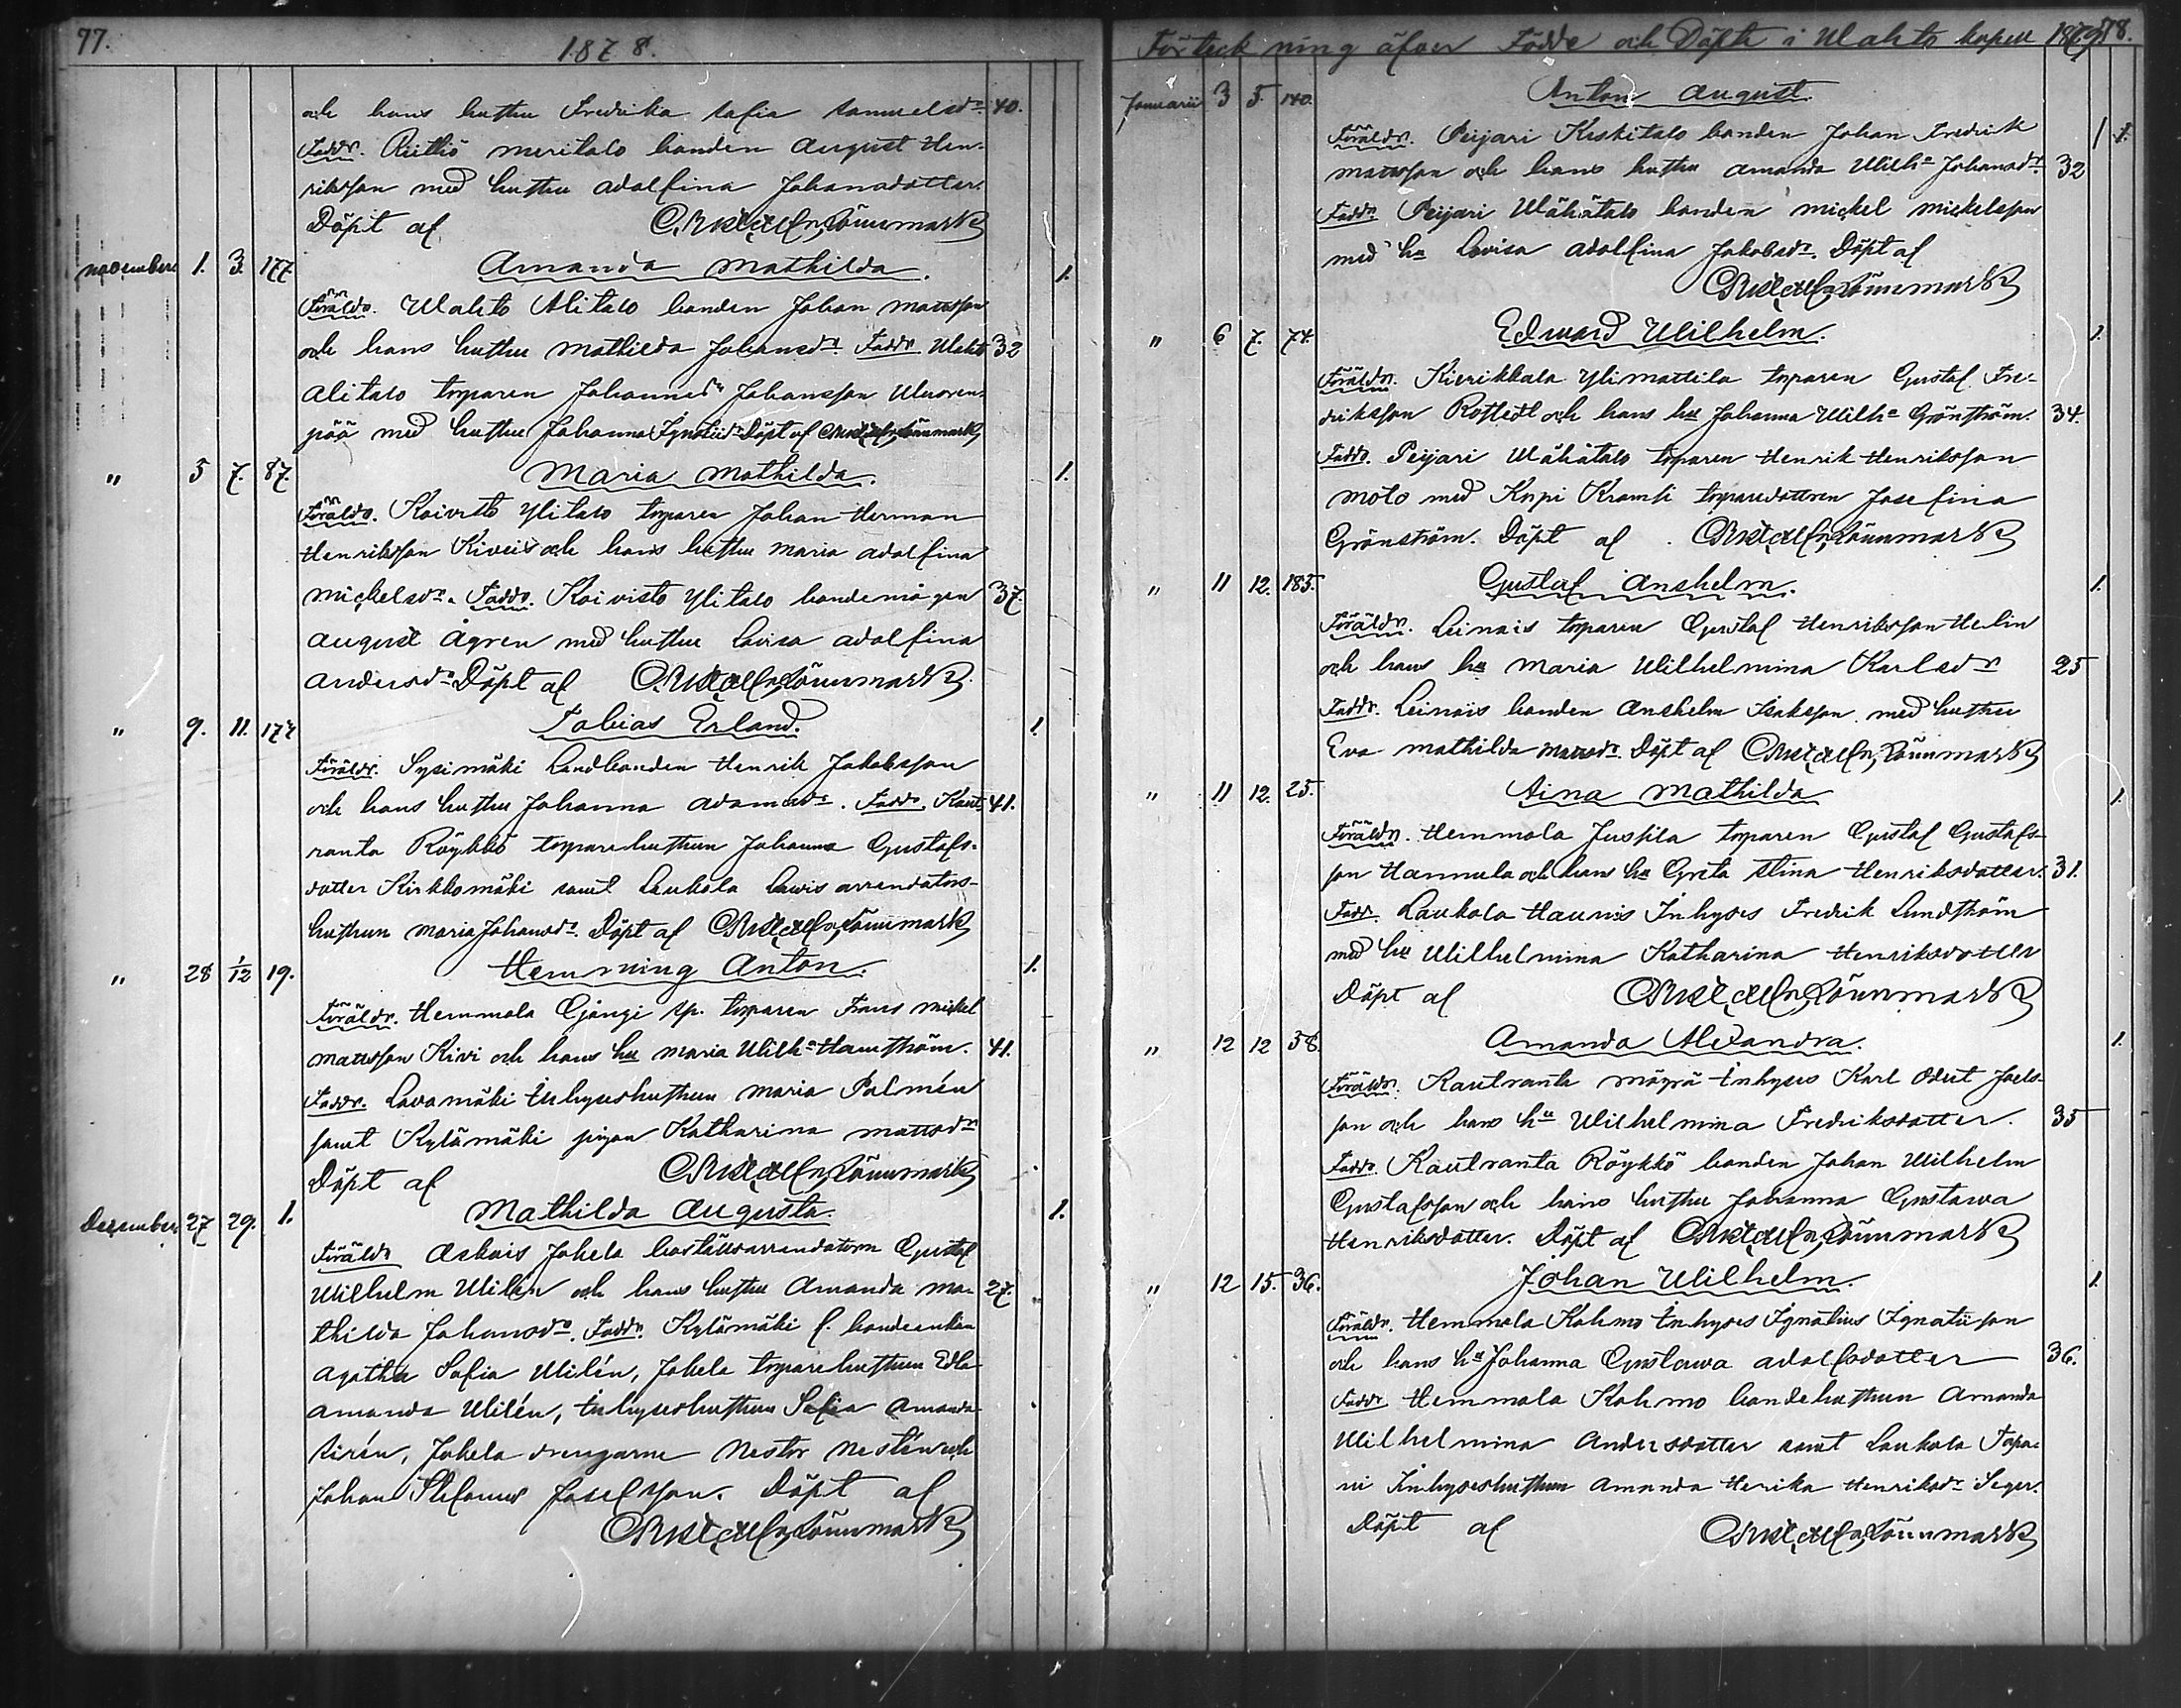 77.
1878.
och hans hustru Fredrika Sofia Samuelsdr 40.
Faddr. Riittiö Meritalo bonden August Hen-
riksson med hustru Adolfina Johansdotter.
Döpt af Lönnmark
November 1. 3. 177 Amanda Mathilda. 1.
Föräldr. Wahto Alitalo bonden Johan Matsson
och hans hustru Mathilda Johansdr. Faddr. Wahto 32
Alitalo torparen Johannes Johansson Wuoren-
pää med hustru Johanna Ignatiidr Döpt af Lönnmark
" 5 7. 87. Maria Mathilda. 1.
Föräldr. Koivisto Ylitalo torparen Johan Herman
Henriksson Kiveis och hans hustru Maria Adolfina
Mickelsdr. Faddr. Koivisto Ylitalo bondemågen 37.
August Ågren med hustru Lovisa Adolfina
Andersdr. Döpt af Lönnmark
" 9. 11. 177 Tobias Erland. 1.
Föräldr. Sysimäki Landbonden Henrik Jakobsson
och hans hustru Johanna Adamsdr. Faddr. Kaut- 41.
ranta Röykkö torparehustrun Johanna Gustafs-
dotter Kirkkomäki samt Laukola Lawis arrendators-
hustrun Maria Johansdr. Döpt af Lönnmark
" 28 1/12 19. Hemming Anton. 1.
Föräldr. Hemmola Gjangi sp. torparen Frans Mickel
Matsson Kivi och hans hu Maria Wilha Hamström. 41.
Faddr. Lavamäki Inhyseshustrun Maria Palmén
samt Kylämäki pigan Katharina Mattsdr
Döpt af Lönnmark
December 27 29. 1. Mathilda Augusta. 1.
Föräldr Askais Jokela boställsarrendatorn Gustaf
Wilhelm Wilén och hans hustru Amanda Ma- 27.
thilda Johansdr. Faddr. Kylämäki f. bondeenkan
Agatha Sofia Wilén, Jokela torparehustrun Edla
Amanda Wilén, Inhyseshustrun Sofia Amanda
Sirén, Jokela drengarne Nestor Nestén och
Johan Stefanus Josefsson. Döpt af
Lönnmark
Förteckning öfver Födde och Döpte i Wahto kapell 1879 78.
Januarii 3 5. 140. Anton August.
Föräldr. Peijari Keskitalo bonden Johan Fredrik 1
Matsson och hans hustru Amanda Wilha Johansdr. 32
Faddr. Peijari Wähätalo bonden Mickel Mickelsson
med hu Lovisa Adolfina Jakobsdr. Döpt af
Lönnmark
" 6 7. 74. Edward Wilhelm. 1.
Föräldr. Kierikkala Ylimattila torparen Gustaf Fre-
driksson Rostedt och hans hu Johanna Wilha Grönström. 34.
Faddr. Peijari Wähätalo torparen Henrik Henriksson
Moto med Knpi Kramsi torparedottren Josefina
Grönström. Döpt af Lönnmark
" 11 12. 185. Gustaf Anshelm. 1.
Föräldr. Leinais torparen Gustaf Henriksson Helin
och hans hu Maria Wilhelmina Karlsdr 25
Faddr. Leinais bonden Anshelm Isaksson med hustru
Eva Mathilda Matsdr. Döpt af Lönnmark
" 11 12. 25. Aina Mathilda 1.
Föräldr. Hemmola Jussila torparen Gustaf Gustafs-
son Hannula och hans hu Greta Stina Henriksdotter. 31.
Faddr. Laukola Haunis Inhyses Fredrik Lundström
med hu Wilhelmina Katharina Henriksdotter
Döpt af Lönnmark
" 12 12 58. Amanda Alexandra. 1.
Föräldr. Kautranta Mäyrä Inhyses Karl Joels-
son och hans hu Wilhelmina Fredriksdotter. 35
Faddr. Kautranta Röykkö bonden Johan Wilhelm
Gustafsson och hans hustru Johanna Gustawa
Henriksdotter. Döpt af Lönnmark
" 12 15. 36. Johan Wilhelm. 1.
Föräldr. Hemmola Kohmo Inhyses Ignatius Ignatiison
och hans hu Johanna Gustawa Adolfsdotter 36.
Faddr Hemmola Kohmo bondehustrun Amanda
Wilhelmina Andersdotter samt Laukola Tapa-
ni Inhyseshustrun Amanda Herika Henriksdr Seger.
Döpt af Lönnmark